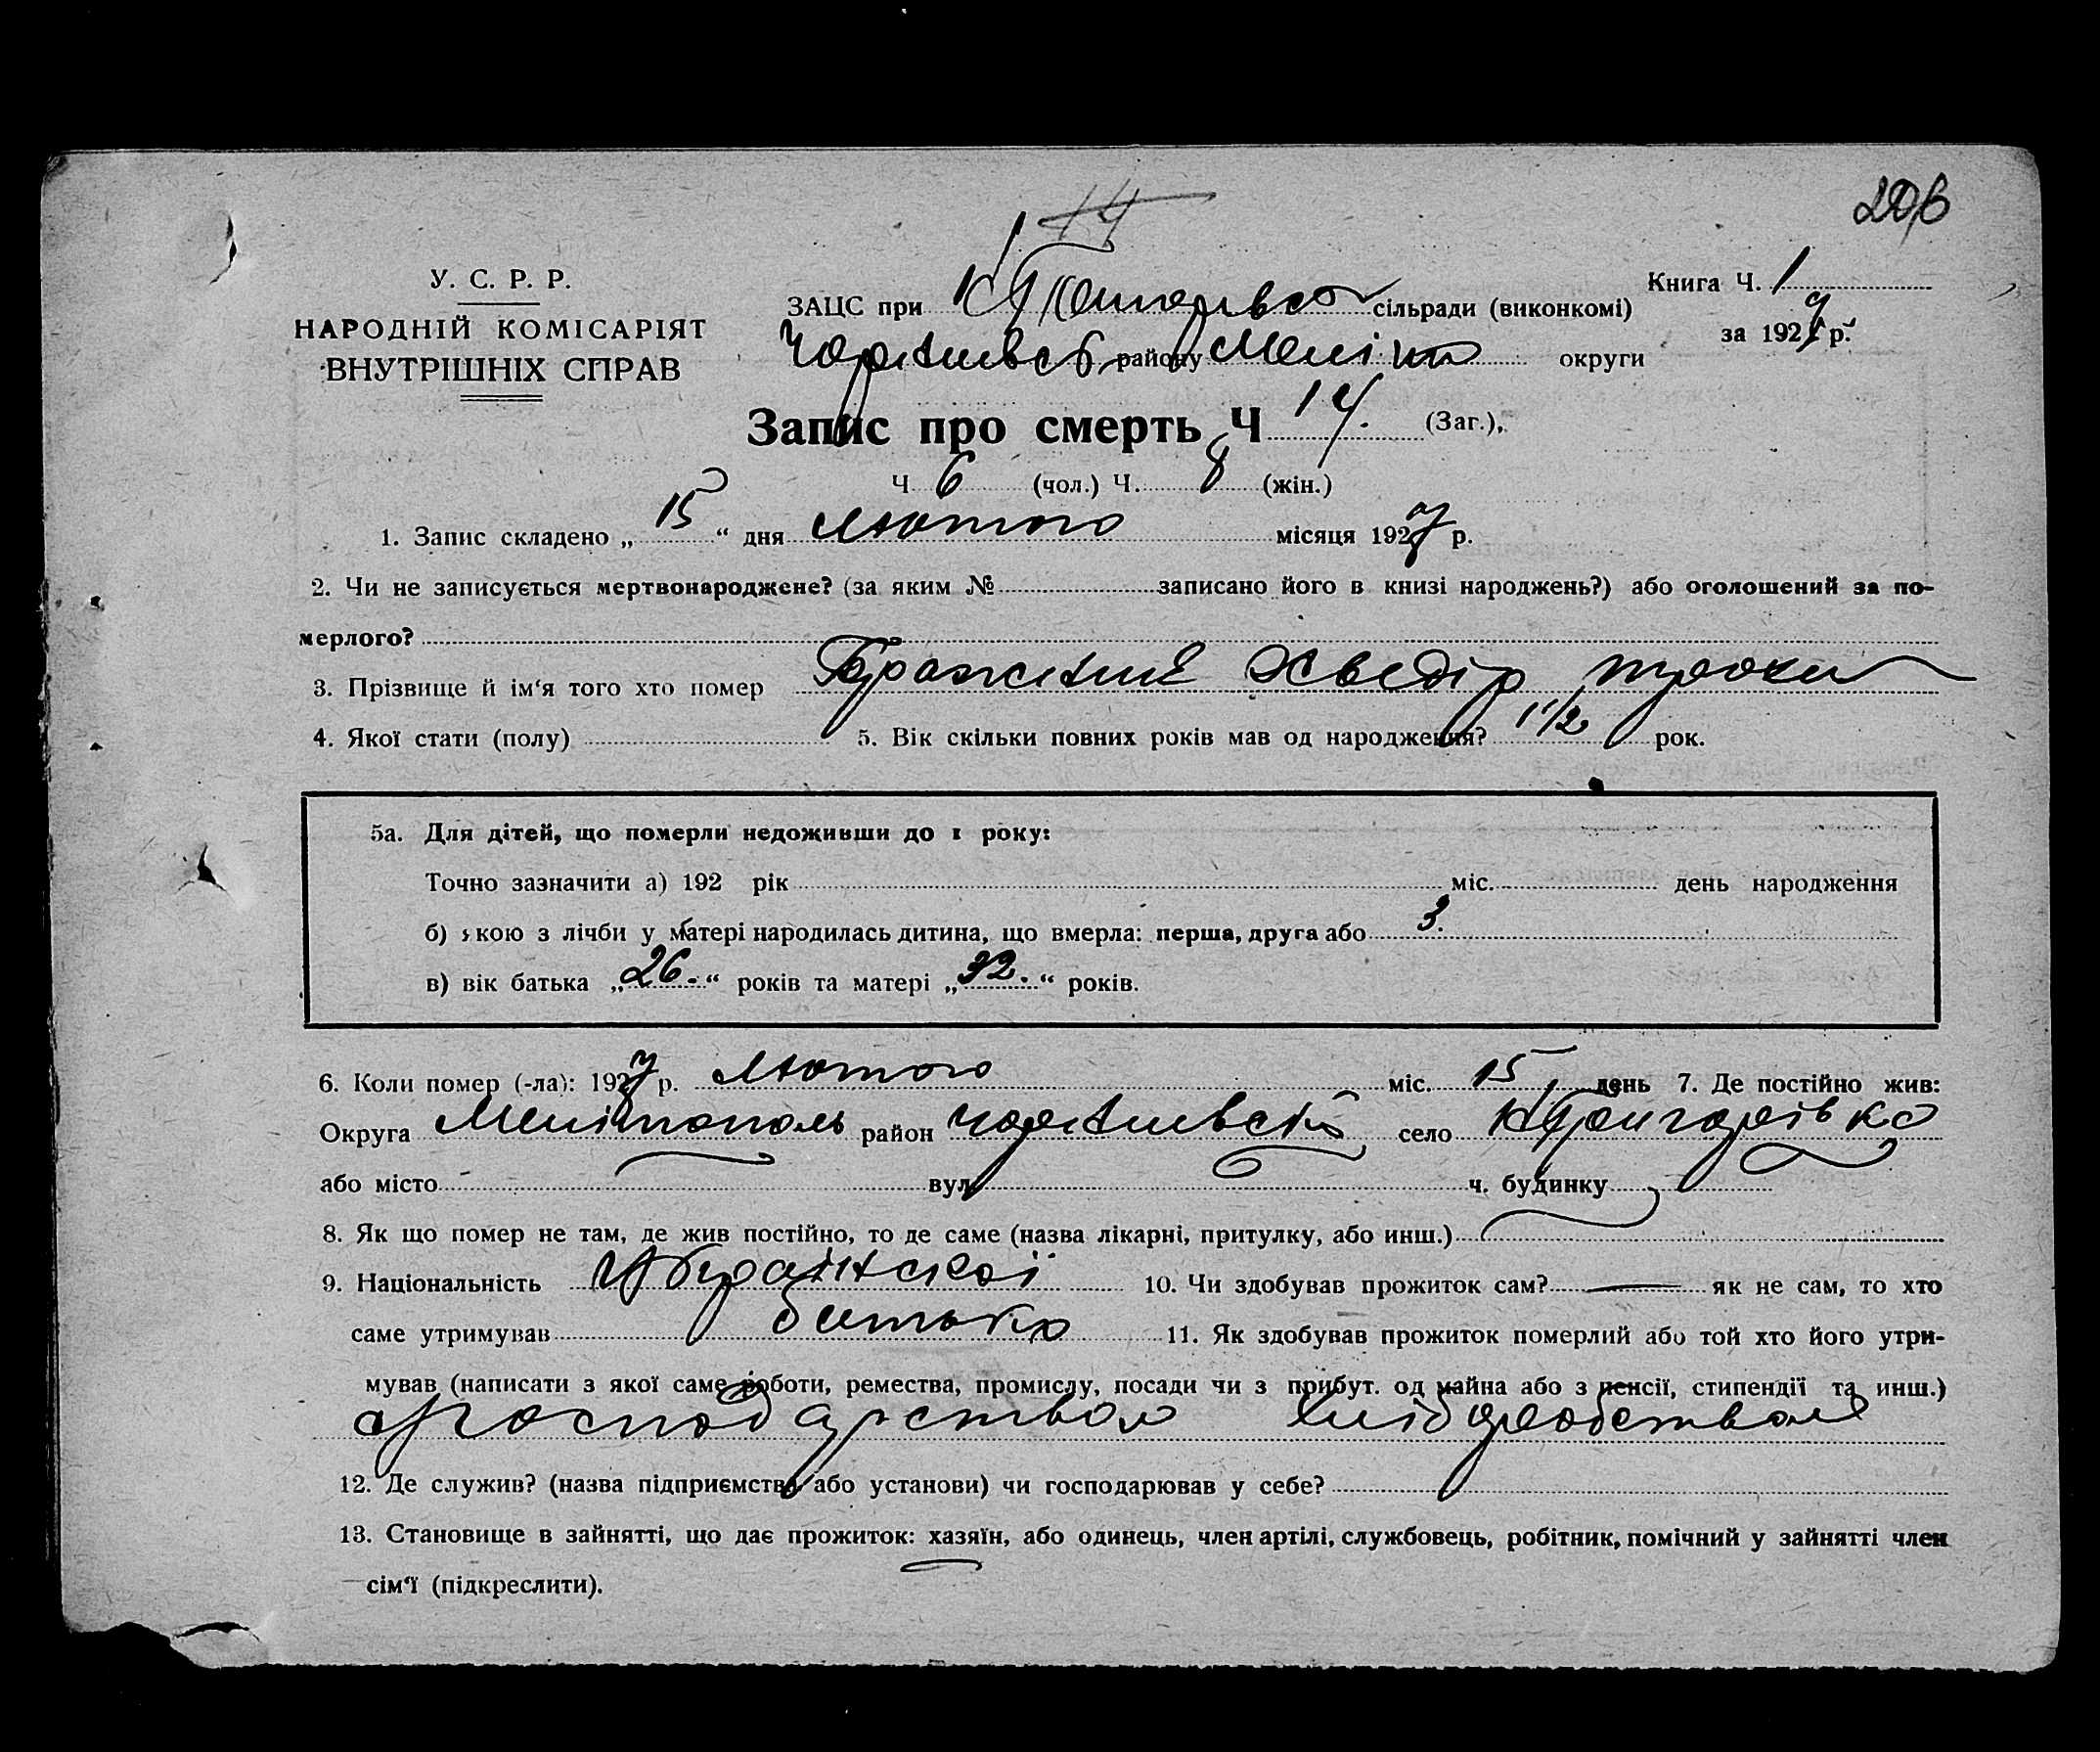 206
14
У. С. Р. Р.
НАРОДНІЙ КОМІСАРІЯТ
ВНУТРІШНІХ СПРАВ
Книга Ч. 1
за 1927 р.
ЗАЦС при сільради (виконкомі)
району округи
Запис про смерть Ч 14. (Заг.),
Ч 6 (чол.) Ч. 8 (жін.)
1. Запис складено „ 15 “ дня Лютого місяця 1927 р.
2. Чи не записується мертвонароджене? (за яким № записано його в книзі народжень?) або оголошений за по-
мерлого?
3. Прізвище й ім‘я того хто помер Хведір
4. Якої стати (полу) 5. Вік скільки повних років мав од народження? 1 1/2 рок.
5а. Для дітей, що померли недоживши до 1 року:
Точно зазначити а) 192 рік міс. день народження
б) якою з лічби у матері народилась дитина, що вмерла: перша, друга або 3.
в) вік батька „26.“ років та матері „32.“ років.
6. Коли помер (-ла): 1927 р. Лютого міс. 15 день 7. Де постійно жив:
Округа Мелітополь район село
або місто вул. ч. будинку
8. Як що помер не там, де жив постійно, то де саме (назва лікарні, притулку, або инш.)
9. Національність Української 10. Чи здобував прожиток сам? — як не сам, то хто
саме утримував батько 11. Як здобував прожиток померлий або той хто його утри-
мував (написати з якої саме роботи, ремества, промислу, посади чи з прибут. од майна або з пенсії, стипендії та инш.)
господарством хліборобством
12. Де служив? (назва підприємства або установи) чи господарював у себе?
13. Становище в зайнятті, що дає прожиток: хазяїн, або одинець, член артілі, службовець, робітник, помічний у зайнятті член
сім‘ї (підкреслити).